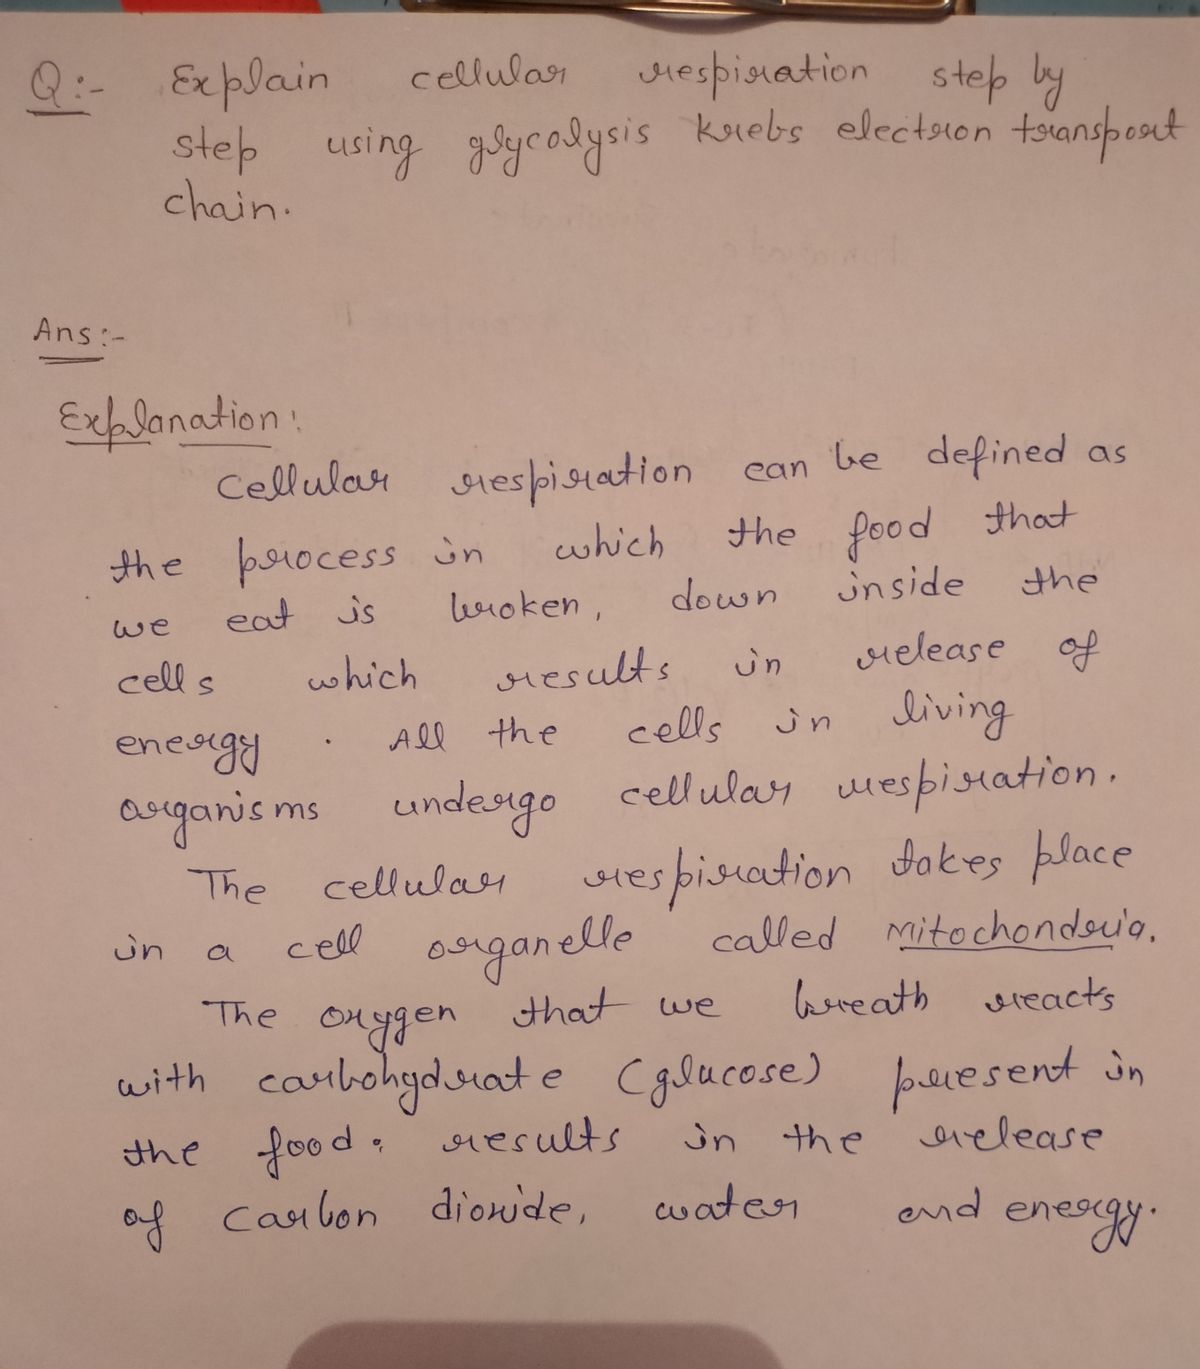 Q:- Explain cellular respiration step by
step using glycolysis krebs electron transport
chain.
Ans:-
Explanation:
Cellular respiration can be defined as
the process in which the food that
we eat is broken, down inside the
cells which results in release of
energy . All the cells in living
organisms undergo cellular respiration.
The cellular respiration takes place
in a cell organelle called Mitochondria.
The oxygen that we breath reacts
with carbohydrate (glucose) present in
the food. results in the release
of Carbon dioxide, water and energy.